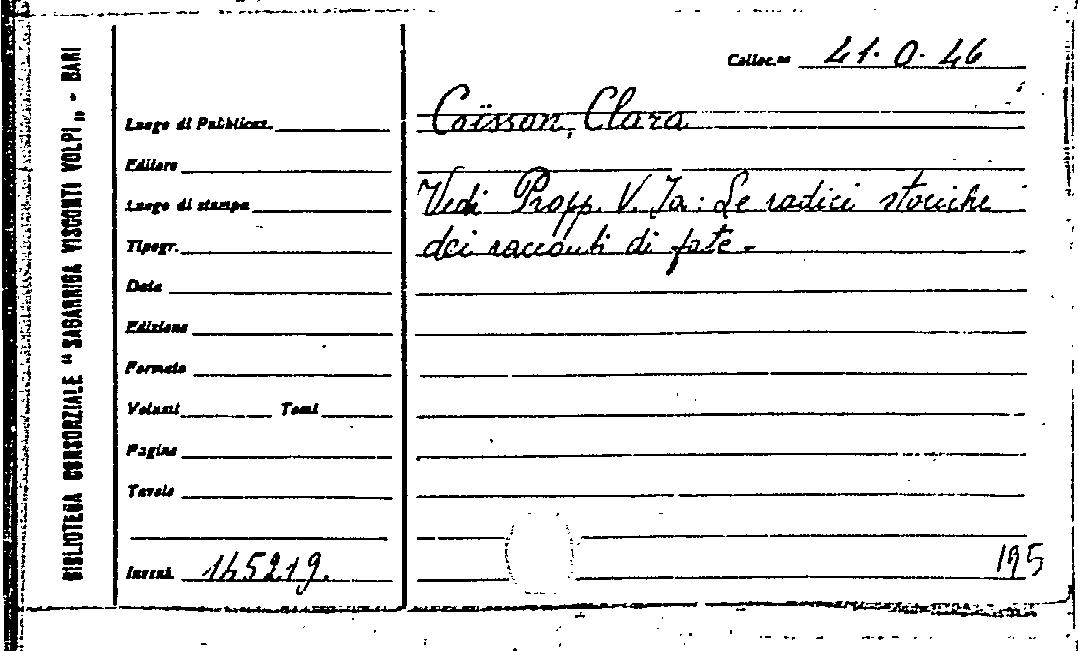 BIBLIOTECA CONSORZIALE "SAGARRIGA VISCONTI VOLPI" - BARI
Colloc.ne 41.0.46
Coïsson, Clara
Vedi Propp. V. Ja: Le radici storiche
dei racconti di fate.
Luogo di Pubblicaz.
Editore
Luogo di stampa
Tipogr.
Data
Edizione
Formato
Volumi Tomi
Pagine
Tavole
Invent. 145219.
195